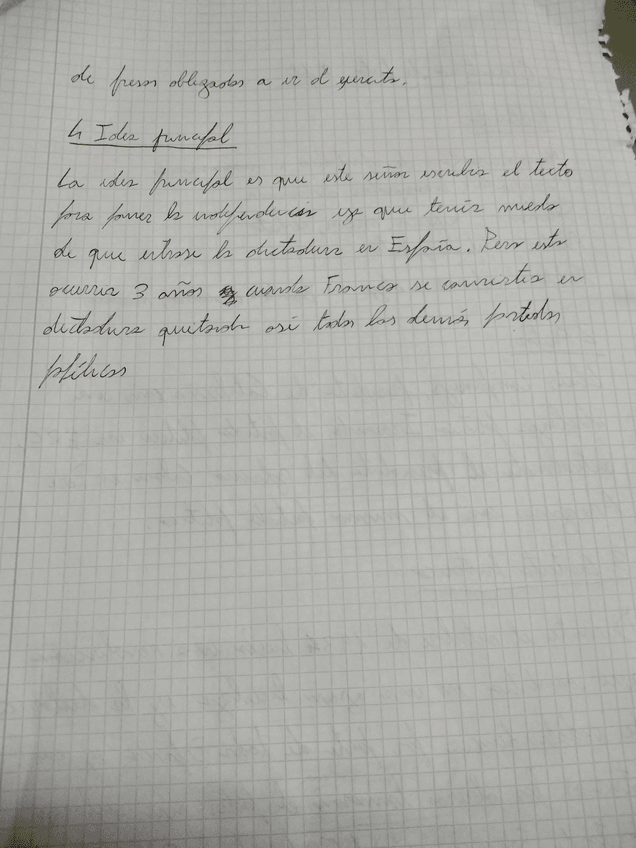 de presos obligados a ir al ejercito.
4 Idea principal
La idea principal es que este señor escribia el texto
para poner la independencia ya que tenia miedo
de que entrase la dictadura en España. Pero esto
ocurrira 3 años cuando Franco se convierta en
dictadura quitando asi todos los demás partidos
políticos